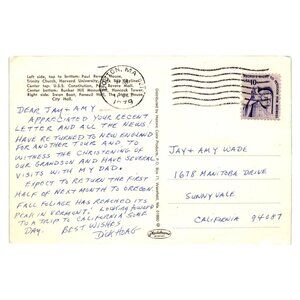 Left side, top to bottom: Paul Revere House,
Trinity Church, Harvard University,
Center top: U.S.S. Constitution, Paul Revere Mall,
Center bottom: Bunker Hill Monument,
Right side: Swan Boat, Faneuil Hall,
City Hall.
BOSTON, MA
1979
DEAR JAY & AMY
APPRECIATED YOUR RECENT
LETTER AND ALL THE NEWS!
HAVE RETURNED TO NEW ENGLAND
FOR ANOTHER TOUR AND TO
WITNESS THE CHRISTENING OF
OUR GRANDSON AND HAVE SEVERAL
VISITS WITH MY DAD.
EXPECT TO RETURN THE FIRST
HALF OF NEXT MONTH TO OREGON.
FALL FOLIAGE HAS REACHED ITS
PEAK IN VERMONT. LOOKING FORWARD
TO A TRIP TO CALIFORNIA SOME
DAY. BEST WISHES
DICK HOAG
JAY & AMY WADE
1678 MANITOBA DRIVE
SUNNYVALE
CALIFORNIA 94087